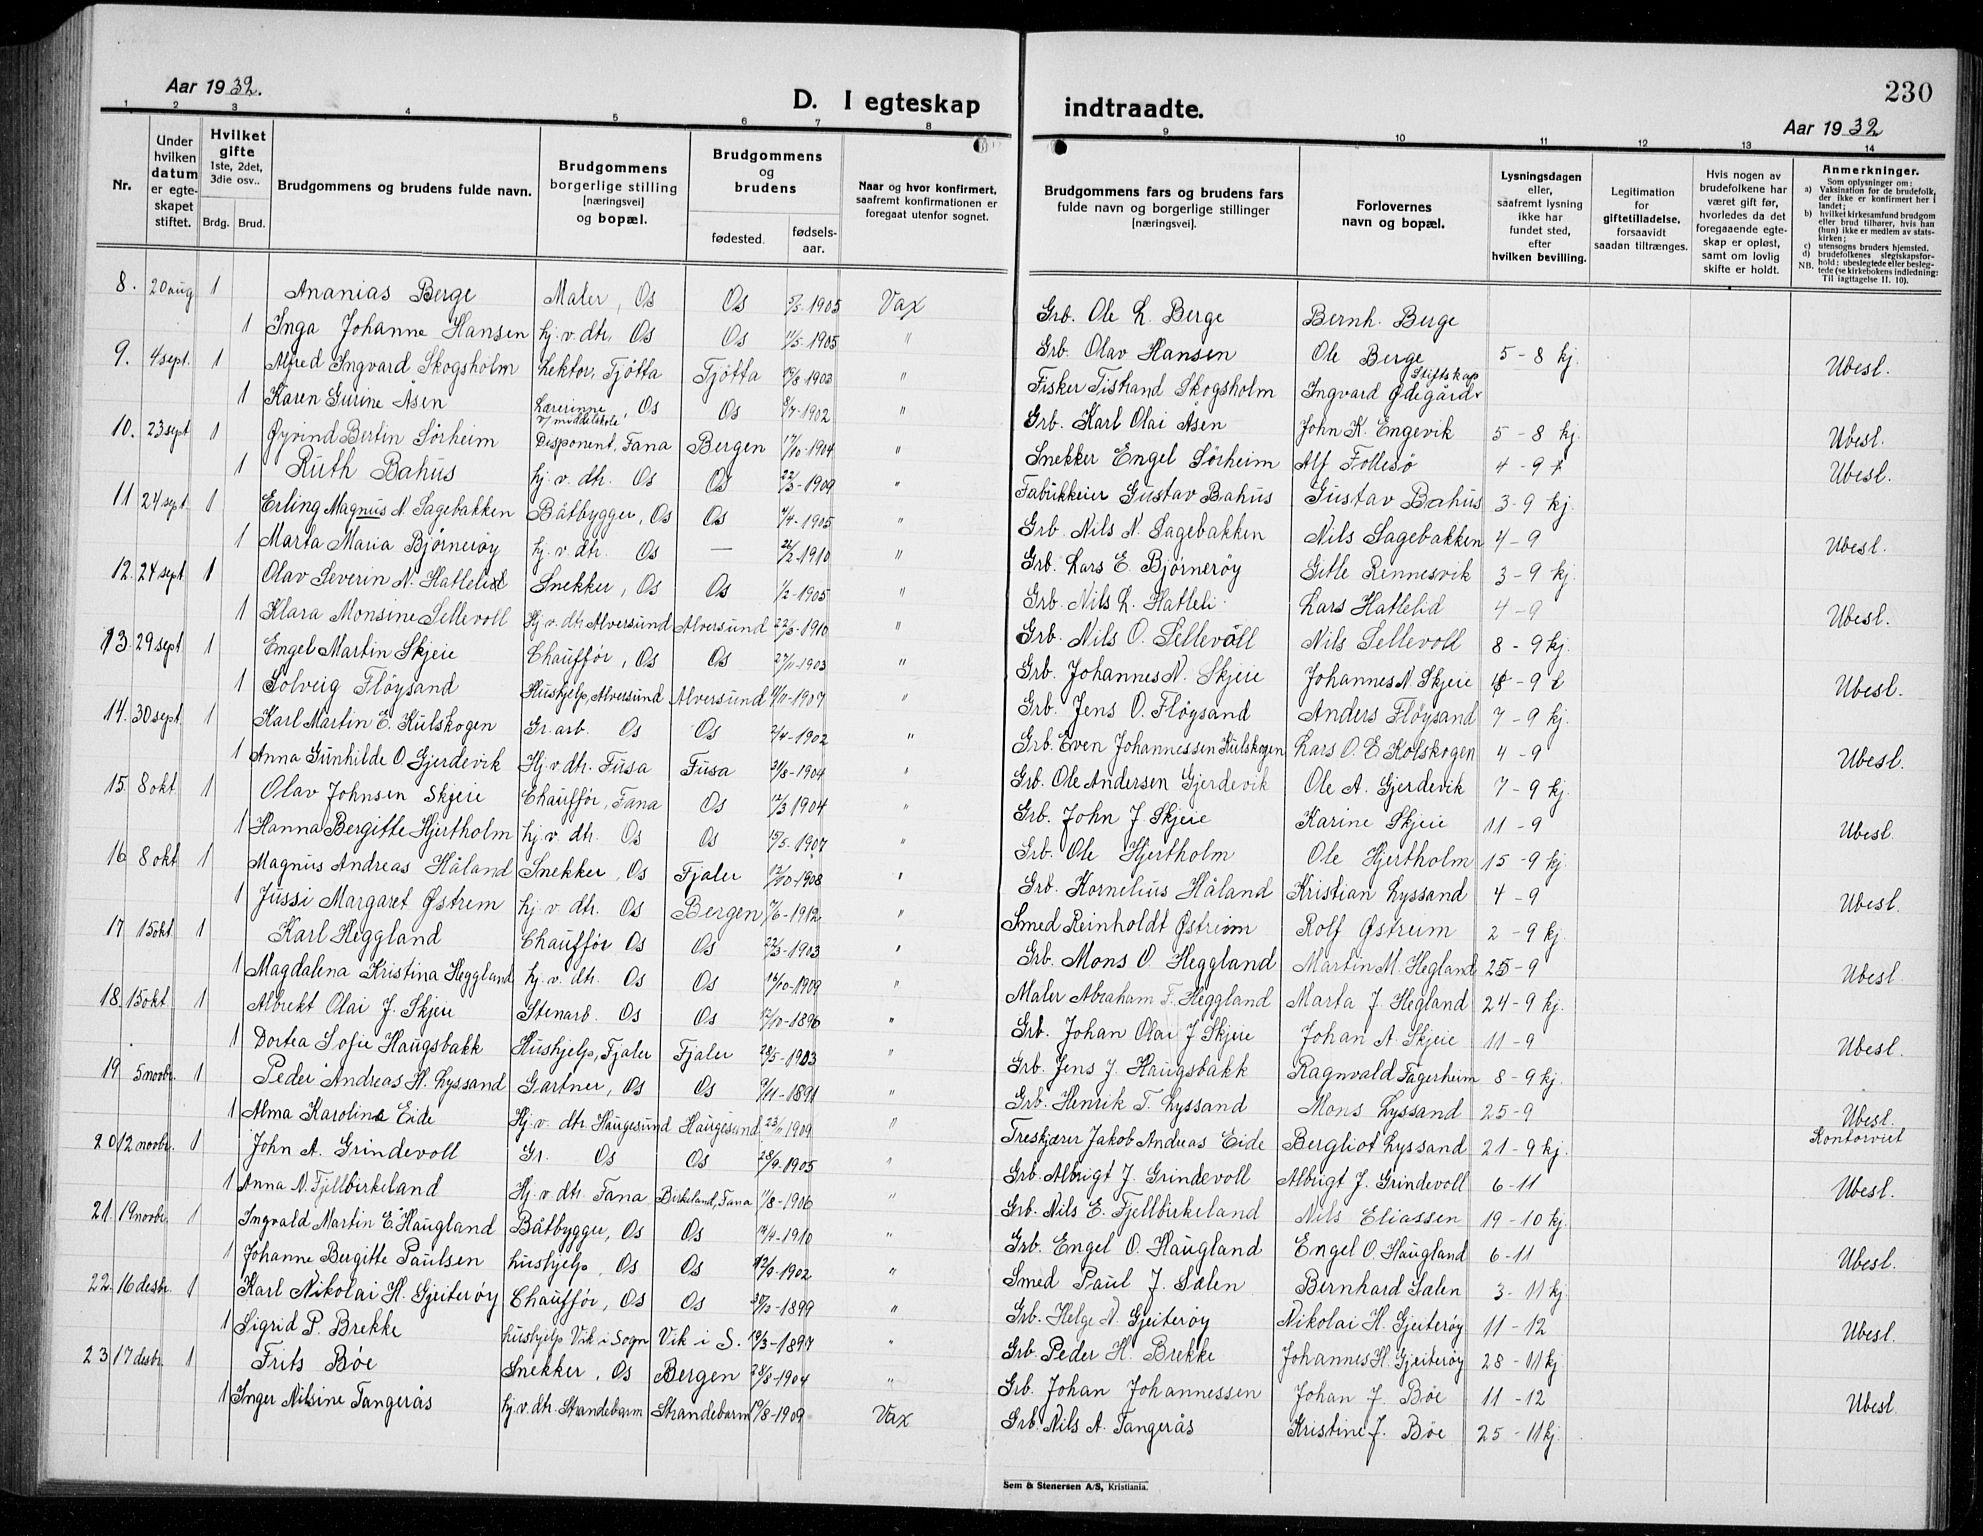 Aar 1932.
D. I egteskap
indtraadte.
230
Aar 1932
1 2 3 4 5 6 7 8 9 10 11 12 13 14
Nr.
Under hvilken datum er egteskapet stiftet.
Hvilket gifte 1ste, 2det, 3die osv..
Brdg. Brud.
Brudgommens og brudens fulde navn.
Brudgommens borgerlige stilling [næringsvei] og bopæl.
Brudgommens og brudens
fødested. fødselsaar.
Naar og hvor konfirmert, saafremt konfirmationen er foregaat utenfor sognet.
Brudgommens fars og brudens fars fulde navn og borgerlige stillinger [næringsvei].
Forlovernes navn og bopæl.
Lysningsdagen eller, saafremt lysning ikke har fundet sted, efter hvilken bevilling.
Legitimation for giftetilladelse, forsaavidt saadan tiltrænges.
Hvis nogen av brudefolkene har været gift før, hvorledes da det foregaaende egteskap er opløst, samt om lovlig skifte er holdt.
Anmerkninger.
Som oplysninger om:
a) Vaksination for de brudefolk, der ikke er konfirmert her i landet;
b) hvilket kirkesamfund brudgom eller brud tilhører, hvis han (hun) ikke er medlem av statskirken;
c) utensogns bruders hjemsted.
d) brudefolkenes slegtskapsforhold: ubeslegtede eller beslegtede (se kirkebokens indledning: Til iagttagelse II. 10).
NB.
8. 20 aug 1 Ananias Berge Maler, Os Os 5/5-1905 Vax Grb. Ole L. Berge Bernh. Berge
1 Inga Johanne Hansen hj.v.dtr. Os Os 11/5-1905 " Grb. Olav Hansen Ole Berge 5-8 kj. Ubesl.
9. 4 sept. 1 Alfred Ingvard Skogsholm Lektor, Tjøtta Tjøtta 19/8-1903 " Fisker Tistrand Skogsholm Ingvard Ødegård Stiftskap
1 Karen Gurine Åsen Lærerinne v/ middelskole, Os Os 8/7-1902 " Grb. Karl Olai Åsen John K. Engevik 5-8 kj. Ubesl.
10. 23 sept 1 Øyvind Bertin Sørheim Disponent, Fana Bergen 17/10-1904 " Snekker Engel Sørheim Alf Follesø 4-9 Ubesl.
1 Ruth Bahus hj.v.dtr. Os Os 22/3-1909 " Fabrikkeier Gustav Bahus Gustav Bahus 3-9 kj.
11 24 sept 1 Erling Magnus N. Sagebakken Båtbygger, Os Os 4/4-1905 " Grb. Nils N. Sagebakken Nils Sagebakken 4-9 Ubesl.
1 Marta Maria Bjørnerøy hj.v.dtr. Os — 26/2-1910 " Grb. Lars E. Bjørnerøy Gitle Rennesvik 3-9 kj.
12. 24 sept 1 Olav Severin N. Hatlelid Snekker, Os Os 1/2-1905 " Grb. Nils L. Hatleli Lars Hatlelid 4-9 Ubesl.
1 Klara Monsine Sellevoll Hj.v.dtr Alversund Alversund 22/3-1910 " Grb. Nils O. Sellevoll Nils Sellevoll 8-9 kj.
13. 29 sept 1 Engel Martin Skjeie Chauffør, Os Os 27/11-1903 " Grb. Johannes N. Skjeie Johannes N. Skjeie Ubesl.
1 Solveig Fløysand Hushjelp, Alversund Alversund 11/11-1907 " Grb. Jens O. Fløysand Anders Fløysand 7-9 kj.
14. 30 sept 1 Karl Martin E. Kulskogen Gr.arb. Os Os 2/4-1902 " Grb. Even Johannessen Kulskogen Lars O. E Kolskogen 4-9 Ubesl.
1 Anna Gunhilde O. Gjerdevik Hj.v.dtr. Fusa Fusa 21/8-1904 " Grb. Ole Andersen Gjerdevik Ole A. Gjerdevik 7-9 kj.
15. 8 okt 1 Olav Johnsen Skjeie Chauffør, Fana Os 12/3 1904 " Grb. John J. Skjeie Karine Skjeie 11-9 Ubesl.
1 Hanna Bergitte Hjertholm hj.v. dtr. Os Os 15/5-1907 " Grb. Ole Hjertholm Ole Hjertholm 15-9 kj.
16 8 okt 1 Magnus Andreas Håland Snekker, Os Fjaler 12/10-1908 " Grb. Kornelius Håland Kristian Lyssand 4-9 Ubesl.
1 Jussi Margaret Østrem hj.v. dtr. Os Bergen 7/6-1912 " Smed Reinholdt Østreim Rolf Østreim 2-9 kj.
17 15 okt 1 Karl Heggland Chauffør, Os Os 22/3-1903 " Grb. Mons O. Heggland Martin M. Hegland 25-9 Ubesl.
1 Magdalena Kristina Heggland hj.v. dtr. Os Os 16/10-1909 " Maler Abraham F. Heggland Marta J. Hegland 24-9 kj.
18. 15 okt 1 Albrekt Olai J. Skjeie Stenarb. Os Os 12/10-1896 " Grb. Johan Olai J Skjeie Johan A. Skjeie 11-9 Ubesl.
1 Dortea Sofie Haugsbakk Hushjelp, Fjaler Fjaler 28/5-1903 " Grb. Jens J. Haugsbakk Ragnvald Fagerheim 8-9 kj.
19 5 novbr. 1 Peder Andreas H. Lyssand Gartner, Os Os 9/11-1891 " Grb. Henrik T. Lyssand Mons Lyssand 25-9 Ubesl. Kontorviet
1 Alma Karolina Eide Hj.v. dtr. Haugesund Haugesund 23/11-1909 " Treskjærer Jakob Andreas Eide Bergliot Lyssand 21-9 kj.
20 12 novbr. 1 John A. Grindevoll Gr. Os Os 28/9-1905 " Grb. Albrigt J. Grindevoll Albrigt J. Grindevoll 6-11 Ubesl.
1 Anna N. Fjellbirkeland Hj.v.dtr. Fana Birkeland, Fana 1/8-1906 " Grb. Nils E. Fjellbirkeland Nils Eliassen 19-10 kj.
21. 19 novbr. 1 Ingvald Martin E. Haugland Båtbygger, Os Os 14/4-1910 " Grb. Engel O. Haugland Engel O. Haugland 6-11 Ubesl.
1 Johanne Bergitte Paulsen hushjelp, Os Os 12/9-1902 " Smed Paul J. Sælen Bernhard Sælen 3-11 kj.
22. 16 desbr. 1 Karl Nikolai H. Gjeiterøy Chauffør, Os Os 30/3-1899 " Grb. Helge N. Gjeiterøy Nikolai H. Gjeiterøy 11-12 Ubesl.
1 Sigrid P. Brekke hushjelp Vik i Sogn Vik i S. 19/3-1897 " Grb. Peder H. Brekke Johannes H. Gjeiterøy 28-11 kj
23 17 desbr. 1 Frits Bøe Snekker, Os Bergen 28/3-1904 " Grb. Johan Johannessen Johan J. Bøe 11-12 Ubesl.
1 Inger Nilsine Tangerås hj.v.dtr. Strandebarm Strandebarm 19/8-1909 Vax Grb. Nils A. Tangerås Kristine J. Bøe 25-11 kj.
Sem & Stenersen A/S, Kristiania.